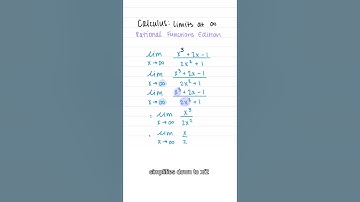 Calculus: Limits at ∞
Rational Functions Edition
lim x→∞ x³ + 2x - 1 / 2x² + 1
lim x→∞ x³ + 2x - 1 / 2x² + 1
lim x→∞ x³ + 2x - 1 / 2x² + 1
= lim x→∞ x³ / 2x²
= lim x→∞ x / 2
simplifies down to x/2